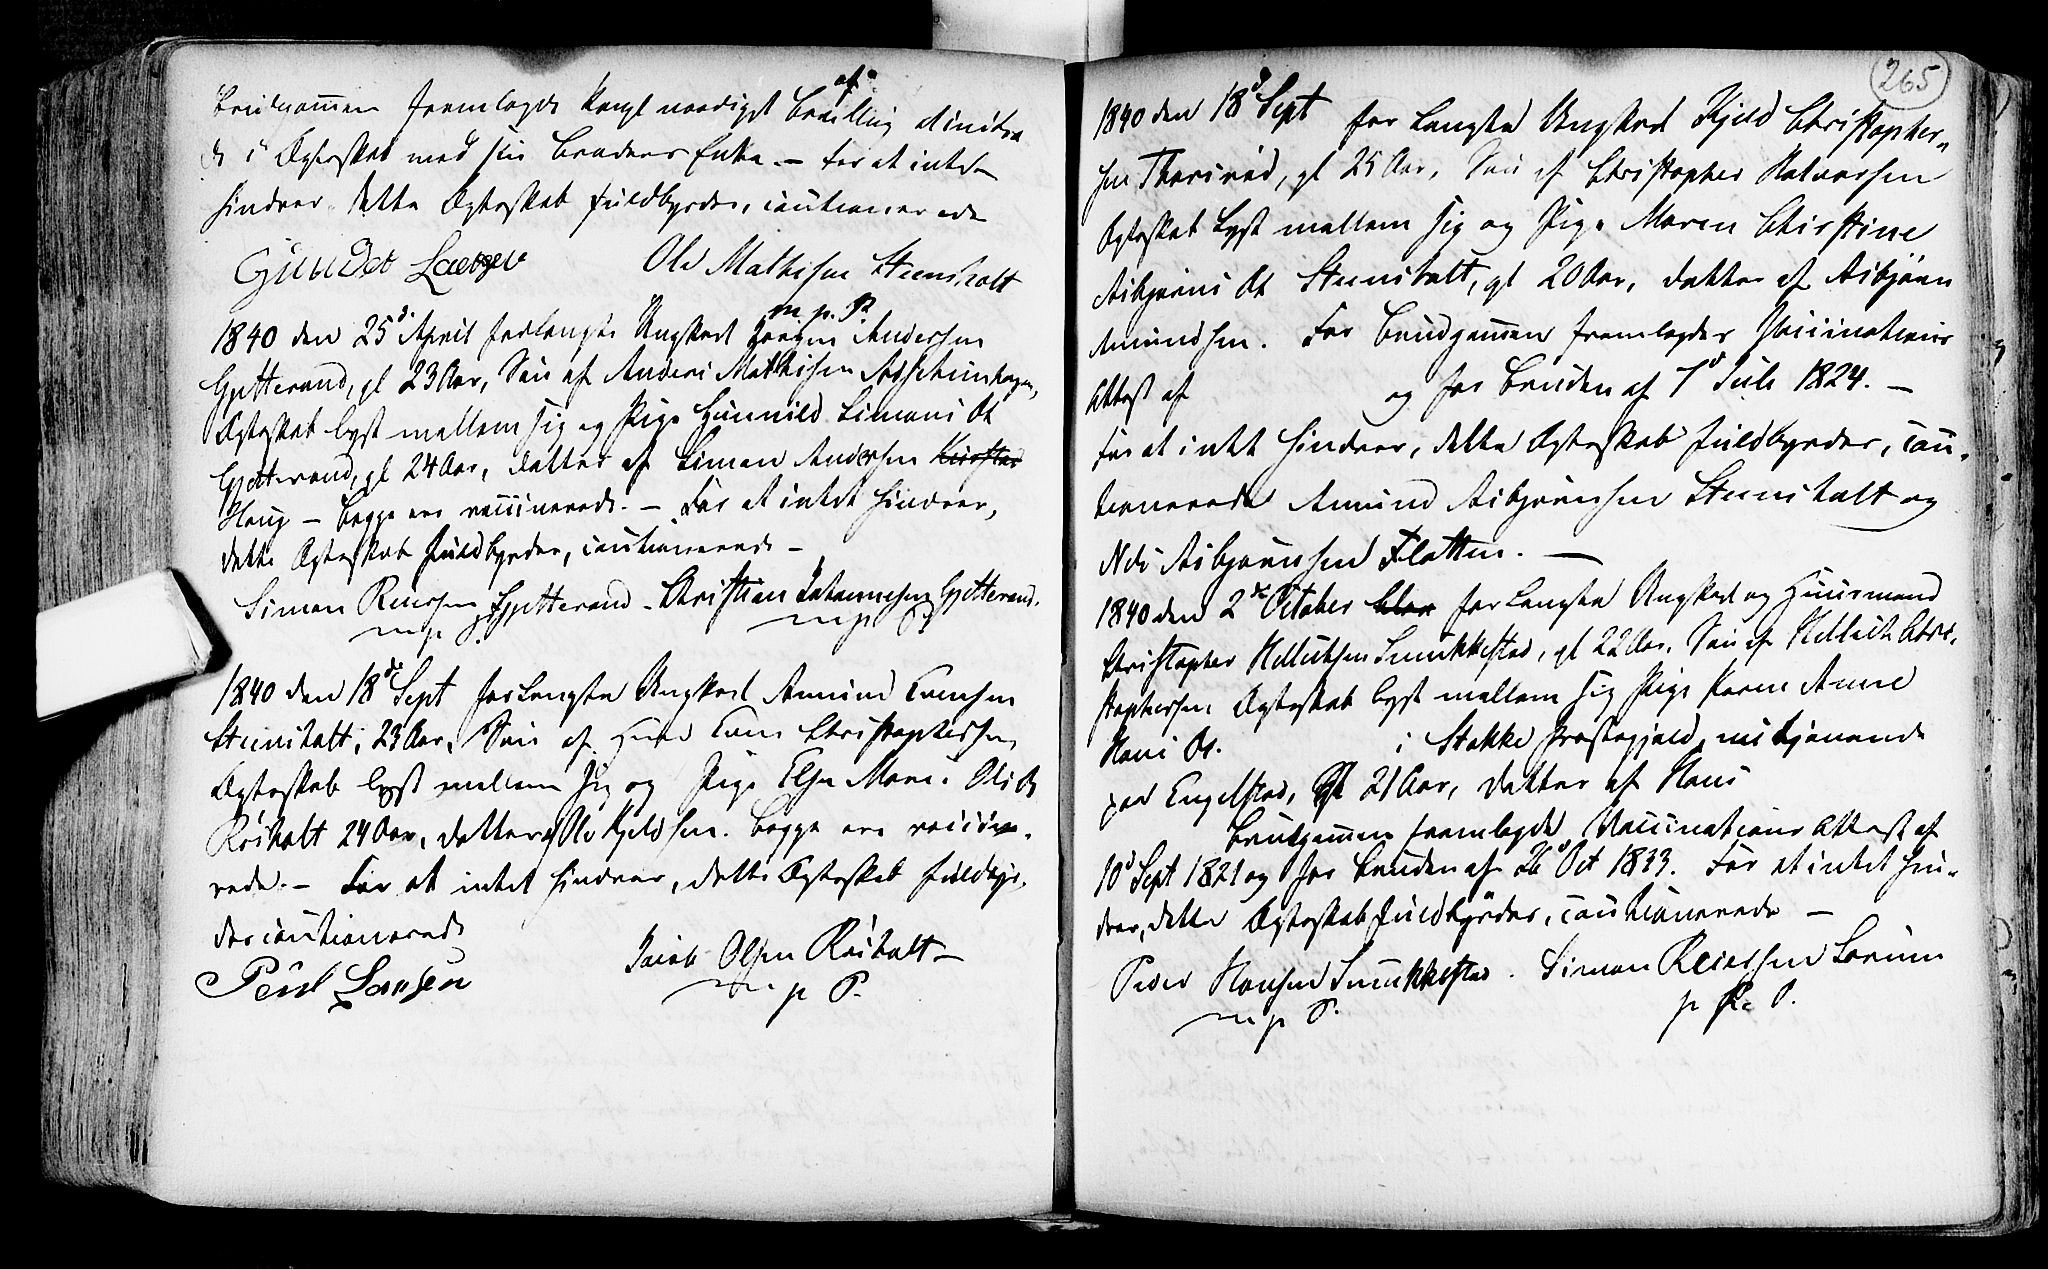 Brudgommen fremlagde Kongl naadigst Bevilling af
d i Ægteskab med sin Broders Enke – for at intet
hindrer dette Ægteskab fuldbyrdes, cautionerede
Gunder Larsen Ole Mathisen Steensholt
m. p. P.
1840 den 25d April forlangte Ungkarl Jørgen Andersen
Gjetterød, gl 23 Aar, Søn af Anders Mathisen
Ægteskab lyst mellem sig og Pige Gunnild Simons Dt
Gjetterød, gl 24 Aar, Datter af Simon Andersen
Haug – begge ere vaccinerede. – For at intet hindrer,
dette Ægteskab fuldbyrdes, cautionerede –
Simon Reiersen Gjetterød – Christian Johannesen Gjetterød.
m p P. m p P.
1840 den 18de Sept forlangte Ungkarl Amund
Steensholt, 23 Aar, Søn af Christophersen
Ægteskab lyst mellem sig og Pige Else Marie Ols Dt
Røsholt 24 Aar, Datter af Ole Kjeldsen. Begge ere vaccine-
rede. – For at intet hindrer, dette Ægteskab fuldbyr-
des cautionerede
Poul Larsen Jacob Olsen Røsholt –
m p P.
265
1840 den 18d Sept forlangte Ungkarl Kjeld Christopher-
sen Thorsrød, gl 25 Aar, Søn af Christopher Halvorsen
Ægteskab Lyst mellem sig og Pige Maren Christine
Asbjørns Dt Steensholt, gl 20 Aar, Datter af Asbjørn
Amundsen. For Brudgommen fremlagdes Vaccinations
Attest af og for Bruden af 7d Juli 1824. –
for at intet hindrer, dette Ægteskab fuldbyrdes, cau-
tionerede Amund Asbjørnsen Steensholt og
Nils Asbjørnsen Flatten. –
1840 den 2de October forlangte Ungkarl og Huusmand
Christopher Hellichsen Snukkestad, gl 22 Aar, Søn af Hellich Chri-
stophersen Ægteskab lyst mellem sig Pige Karen Anne
Hans Dt. i Stokke Præstegjeld, nu tjenende
paa Engelstad, gl 21 Aar, Datter af Hans
Brudgommen fremlagde Vaccinations Attest af
10d Sept 1821 og for Bruden af 26d Oct 1833. For at intet hin-
drer, dette Ægteskab fuldbyrdes, cautionerede –
Peder Hansen Snukkestad. Simon Reiersen Borum
m p P. p P.